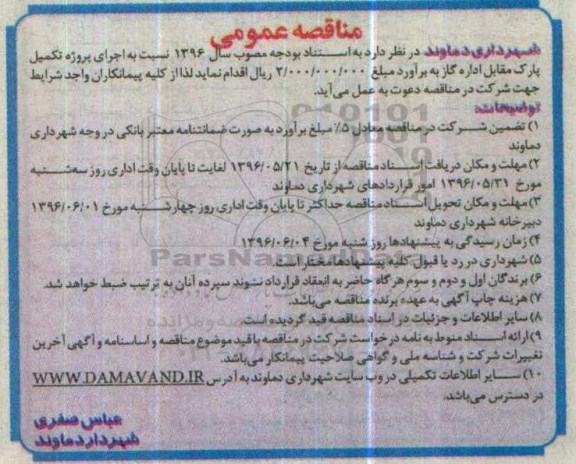 مناقصه عمومی
شهرداری دماوند در نظر دارد به استناد بودجه مصوب سال ۱۳۹۶ نسبت به اجرای پروژه تکمیل
پارک مقابل اداره گاز به برآورد مبلغ ۳/۰۰۰/۰۰۰/۰۰۰ ریال اقدام نماید لذا از کلیه پیمانکاران واجد شرایط
جهت شرکت در مناقصه دعوت به عمل می‌آید.
توضیحات:
۱) تضمین شرکت در مناقصه معادل ۵٪ مبلغ برآورد به صورت ضمانتنامه معتبر بانکی در وجه شهرداری
دماوند
۲) مهلت و مکان دریافت اسناد مناقصه از تاریخ ۱۳۹۶/۰۵/۲۱ لغایت تا پایان وقت اداری روز سه‌شنبه
مورخ ۱۳۹۶/۰۵/۳۱ امور قراردادهای شهرداری دماوند
۳) مهلت و مکان تحویل اسناد مناقصه حداکثر تا پایان وقت اداری روز چهارشنبه مورخ ۱۳۹۶/۰۶/۰۱
دبیرخانه شهرداری دماوند
۴) زمان رسیدگی به پیشنهادها روز شنبه مورخ ۱۳۹۶/۰۶/۰۴
۵) شهرداری در رد یا قبول کلیه پیشنهادها مختار است.
۶) برندگان اول و دوم و سوم هرگاه حاضر به انعقاد قرارداد نشوند سپرده آنان به ترتیب ضبط خواهد شد.
۷) هزینه چاپ آگهی به عهده برنده مناقصه می‌باشد.
۸) سایر اطلاعات و جزئیات در اسناد مناقصه قید گردیده است.
۹) ارائه اسناد منوط به نامه درخواست شرکت در مناقصه با قید موضوع مناقصه و اساسنامه و آگهی آخرین
تغییرات شرکت و شناسه ملی و گواهی صلاحیت پیمانکار می‌باشد.
۱۰) سایر اطلاعات تکمیلی در وب سایت شهرداری دماوند به آدرس WWW.DAMAVAND.IR
در دسترس می‌باشد.
عباس صفری
شهردار دماوند